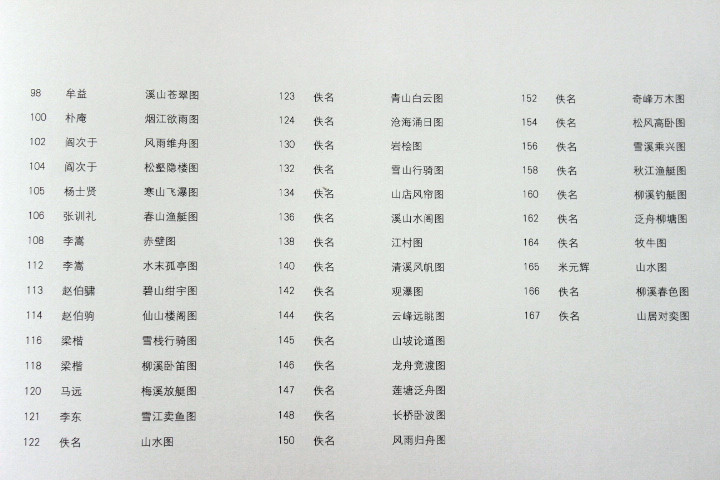 98 牟益 溪山苍翠图
100 朴庵 烟江欲雨图
102 阎次于 风雨维舟图
104 阎次于 松壑隐楼图
105 杨士贤 寒山飞瀑图
106 张训礼 春山渔艇图
108 李嵩 赤壁图
112 李嵩 水末孤亭图
113 赵伯骕 碧山绀宇图
114 赵伯驹 仙山楼阁图
116 梁楷 雪栈行骑图
118 梁楷 柳溪卧笛图
120 马远 梅溪放艇图
121 李东 雪江卖鱼图
122 佚名 山水图
123 佚名 青山白云图
124 佚名 沧海涌日图
130 佚名 岩桧图
132 佚名 雪山行骑图
134 佚名 山店风帘图
136 佚名 溪山水阁图
138 佚名 江村图
140 佚名 清溪风帆图
142 佚名 观瀑图
144 佚名 云峰远眺图
145 佚名 山坡论道图
146 佚名 龙舟竞渡图
147 佚名 莲塘泛舟图
148 佚名 长桥卧波图
150 佚名 风雨归舟图
152 佚名 奇峰万木图
154 佚名 松风高卧图
156 佚名 雪溪乘兴图
158 佚名 秋江渔艇图
160 佚名 柳溪钓艇图
162 佚名 泛舟柳塘图
164 佚名 牧牛图
165 米元辉 山水图
166 佚名 柳溪春色图
167 佚名 山居对奕图